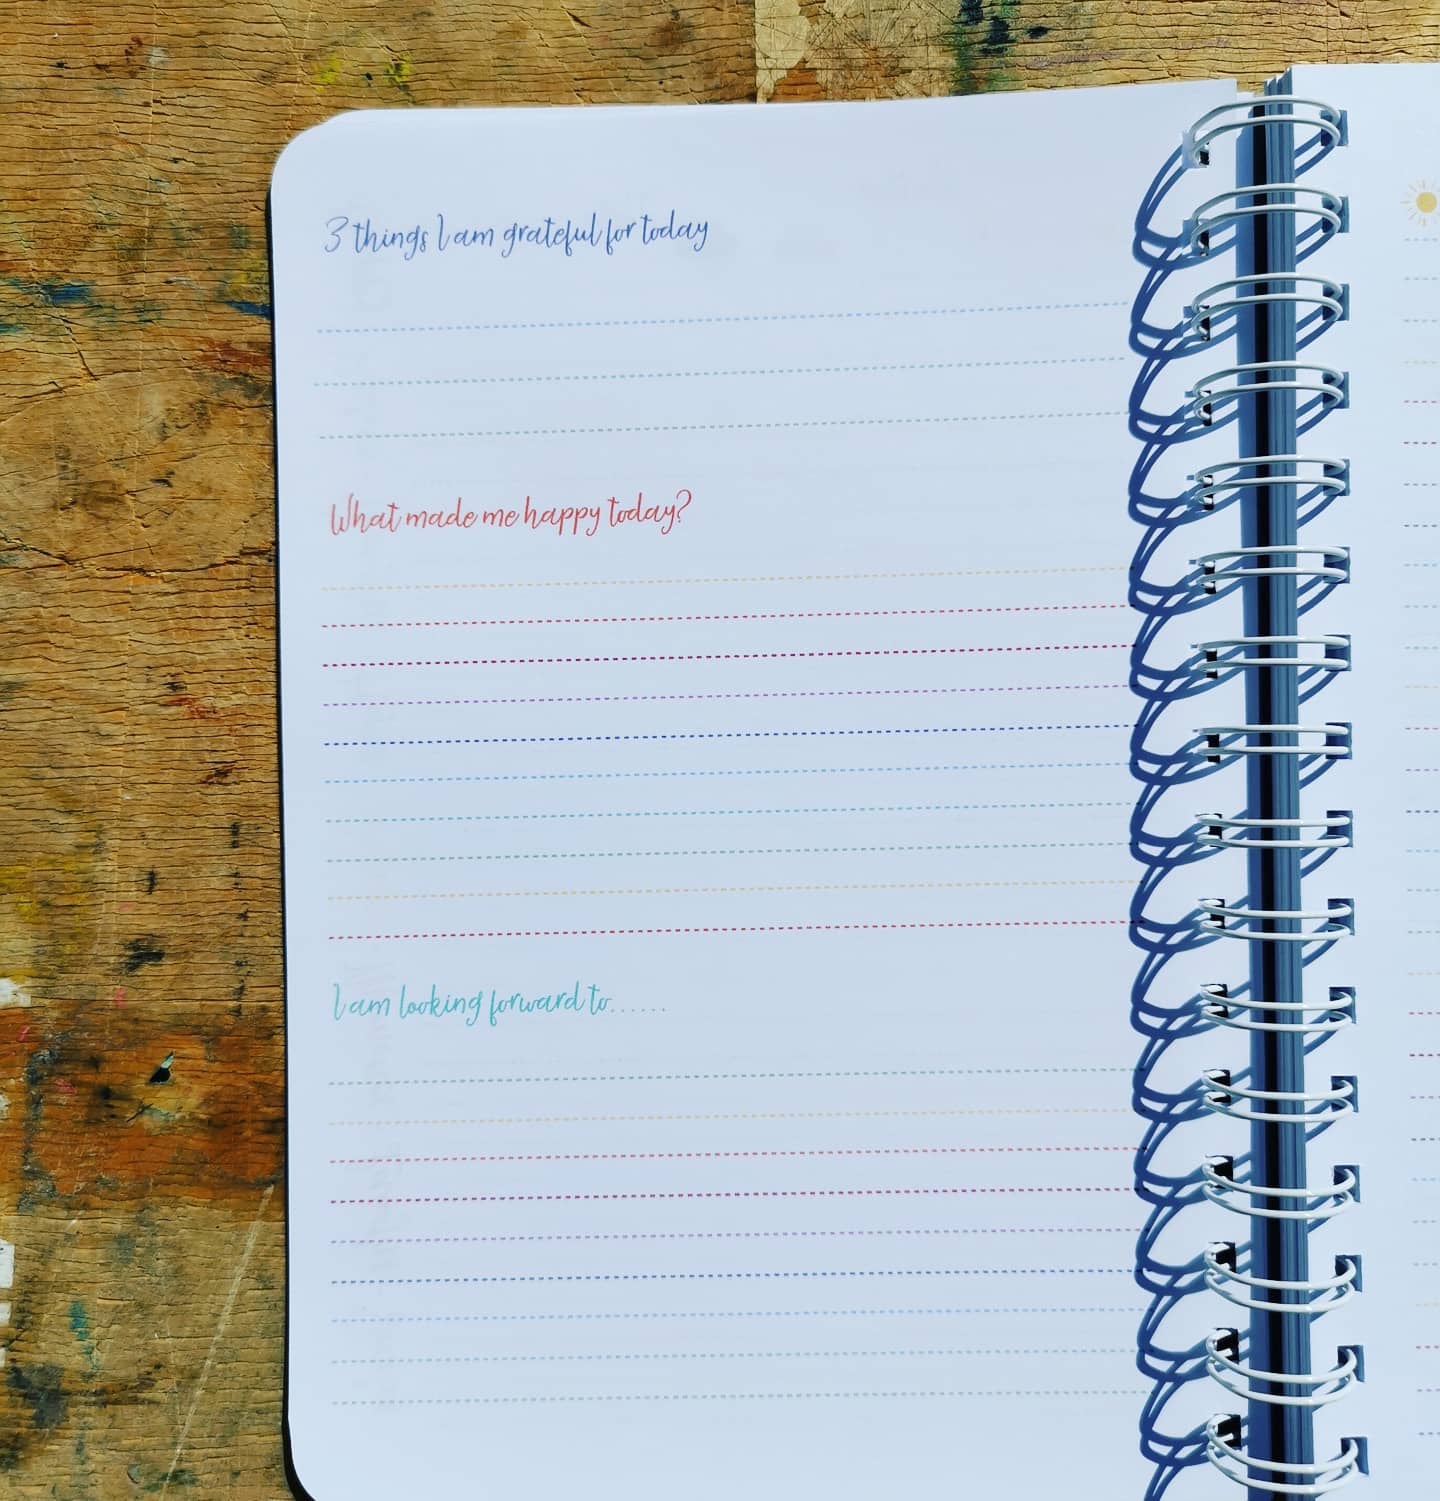 3 things I am grateful for today
What made me happy today?
I am looking forward to......